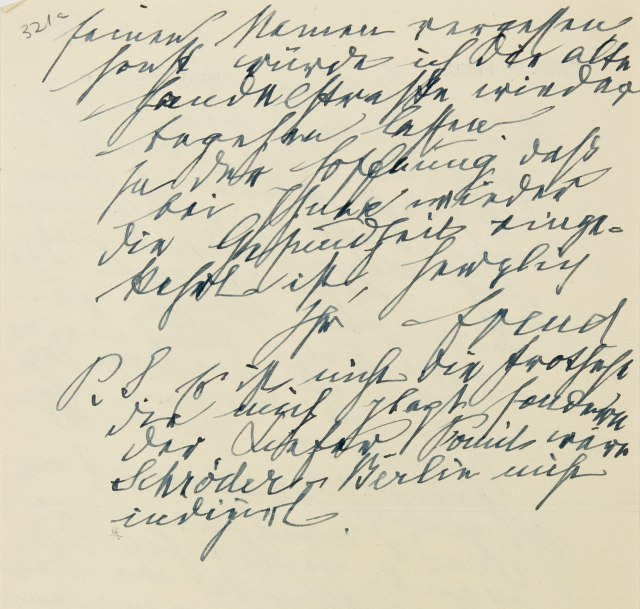 321a
seinen Namen vergessen
sonst würde ich die alte
Handelsstrasse wieder
begehen lassen
In der Hoffnung, daß
bei Ihnen wieder
die Gesundheit einge-
kehrt ist, herzlich
Ihr Freud
P.S Es ist nicht die Prothese
die mich plagt sondern
der Kiefer Somit wäre
Schröder-Berlin nicht
indizirt.